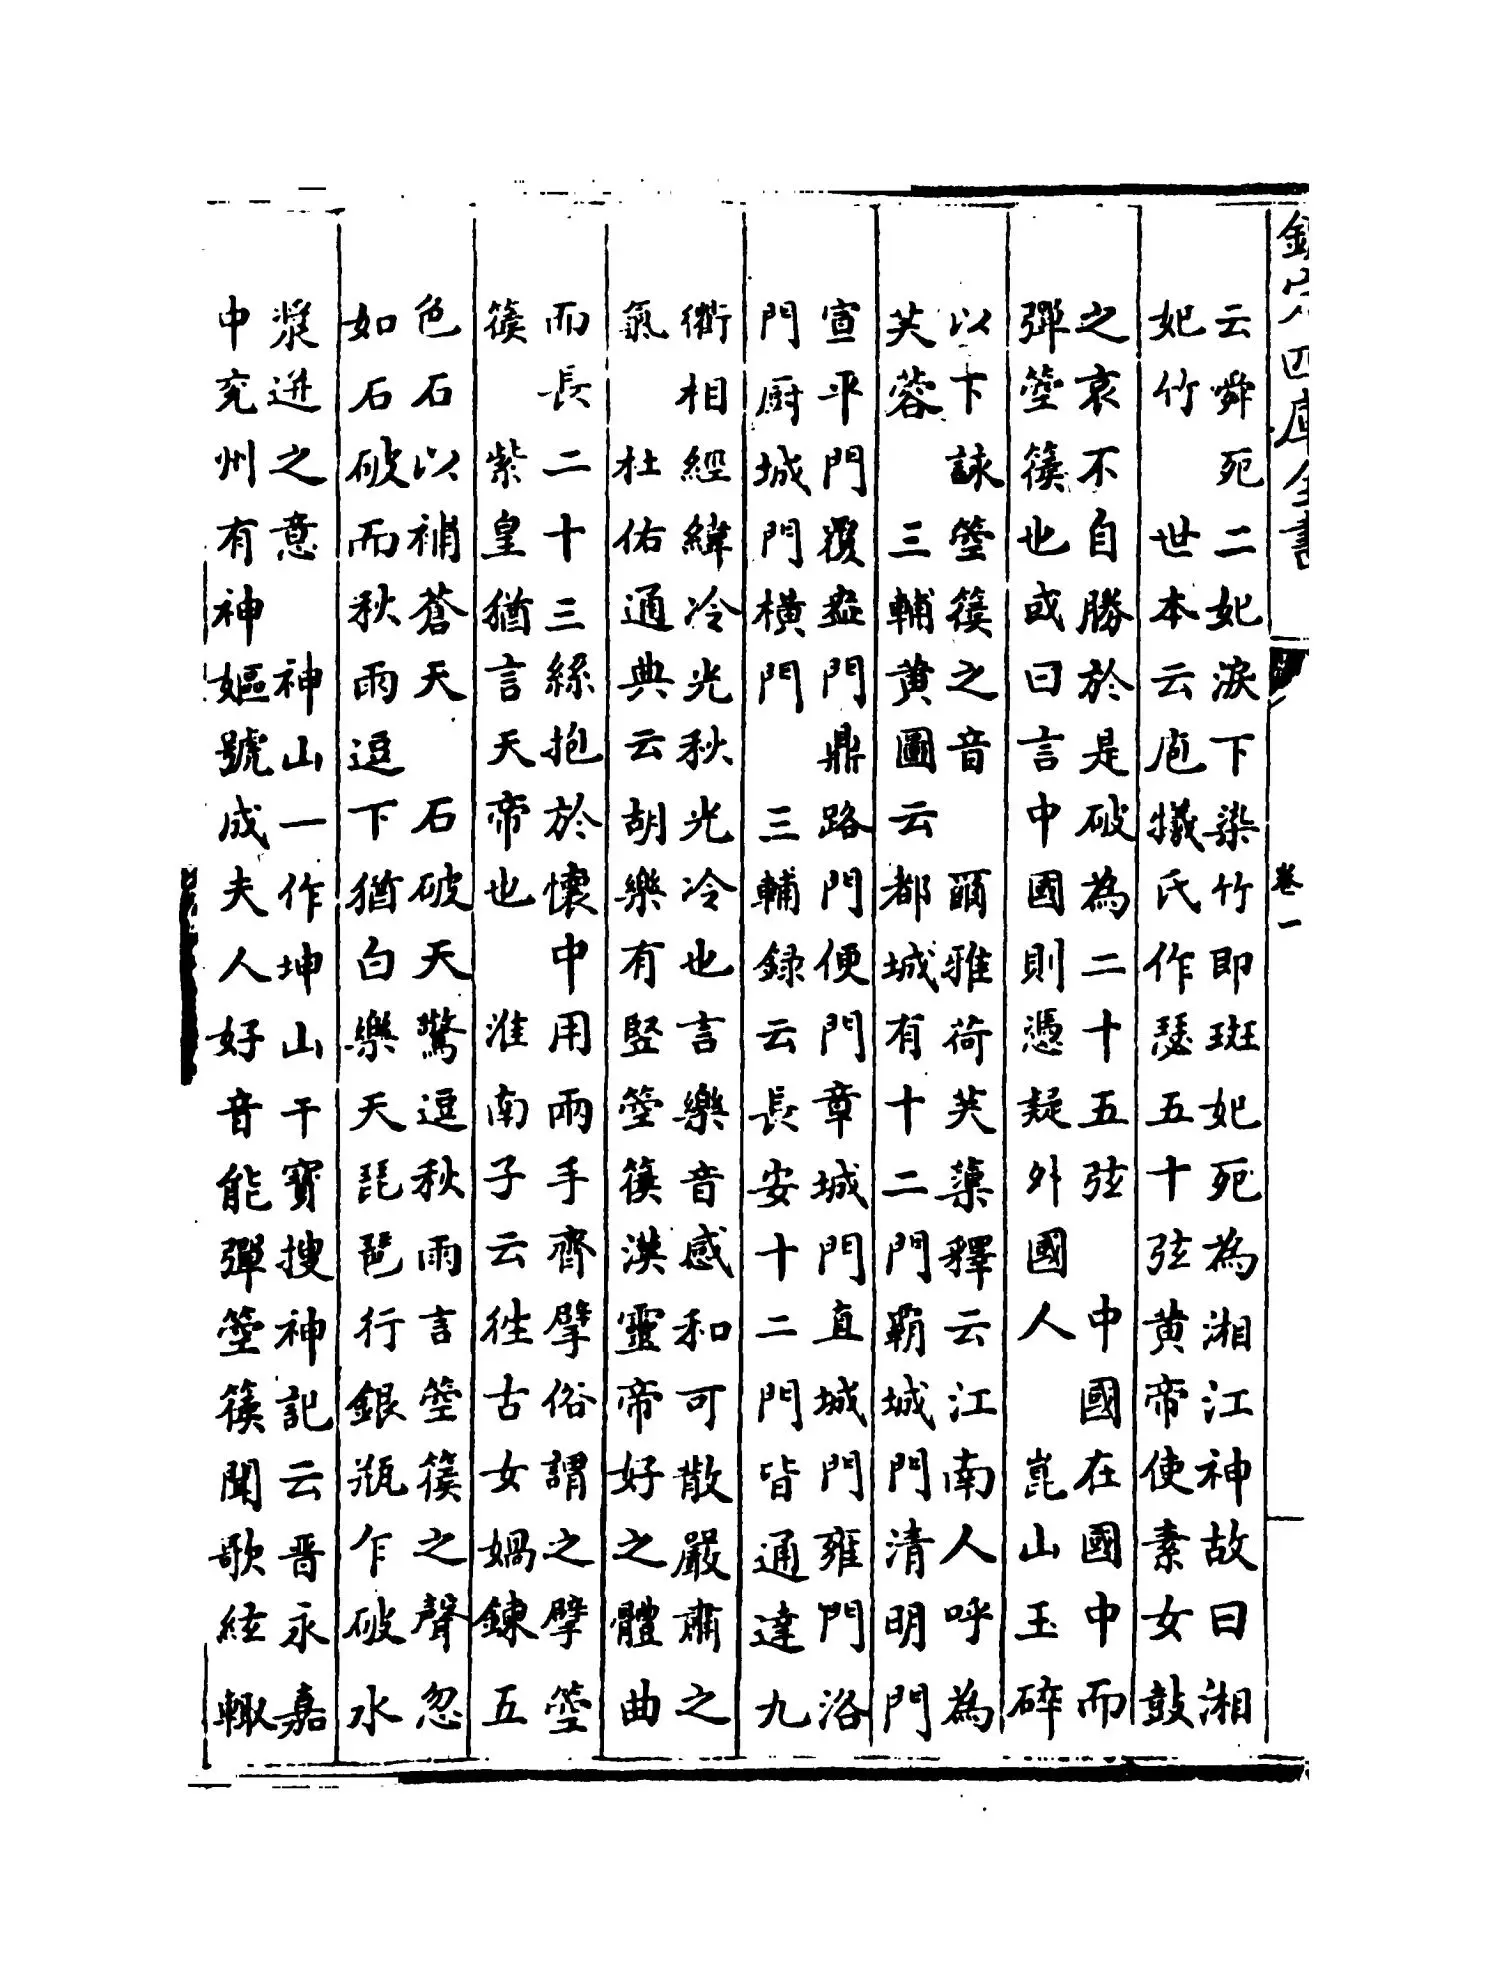 欽定四庫全書
卷一
云舜死二妃淚下染竹即斑妃死為湘江神故曰湘
妃竹　世本云庖犧氏作瑟五十弦黄帝使素女鼓
之哀不自勝於是破為二十五弦　中國在國中而
彈箜篌也或曰言中國則憑疑外國人　崑山玉碎
以下詠箜篌之音　爾雅荷芙蕖釋云江南人呼為
芙蓉　三輔黄圖云都城有十二門覇城門清明門
宣平門覆盎門鼎路門便門章城門直城門雍門洛
門厨城門横門　三輔録云長安十二門皆通達九
衢相經緯冷光秋光冷也言樂音感和可散嚴肅之
氣　杜佑通典云胡樂有竪箜篌漢靈帝好之體曲
而長二十三絲抱於懷中用兩手齊擘俗謂之擘箜
篌　紫皇猶言天帝也　淮南子云徃古女媧鍊五
色石以補蒼天　石破天驚逗秋雨言箜篌之聲忽
如石破而秋雨逗下猶白樂天琵琶行銀瓶乍破水
漿迸之意　神山一作坤山干寶搜神記云晋永嘉
中兖州有神嫗號成夫人好音能彈箜篌聞歌絃輙